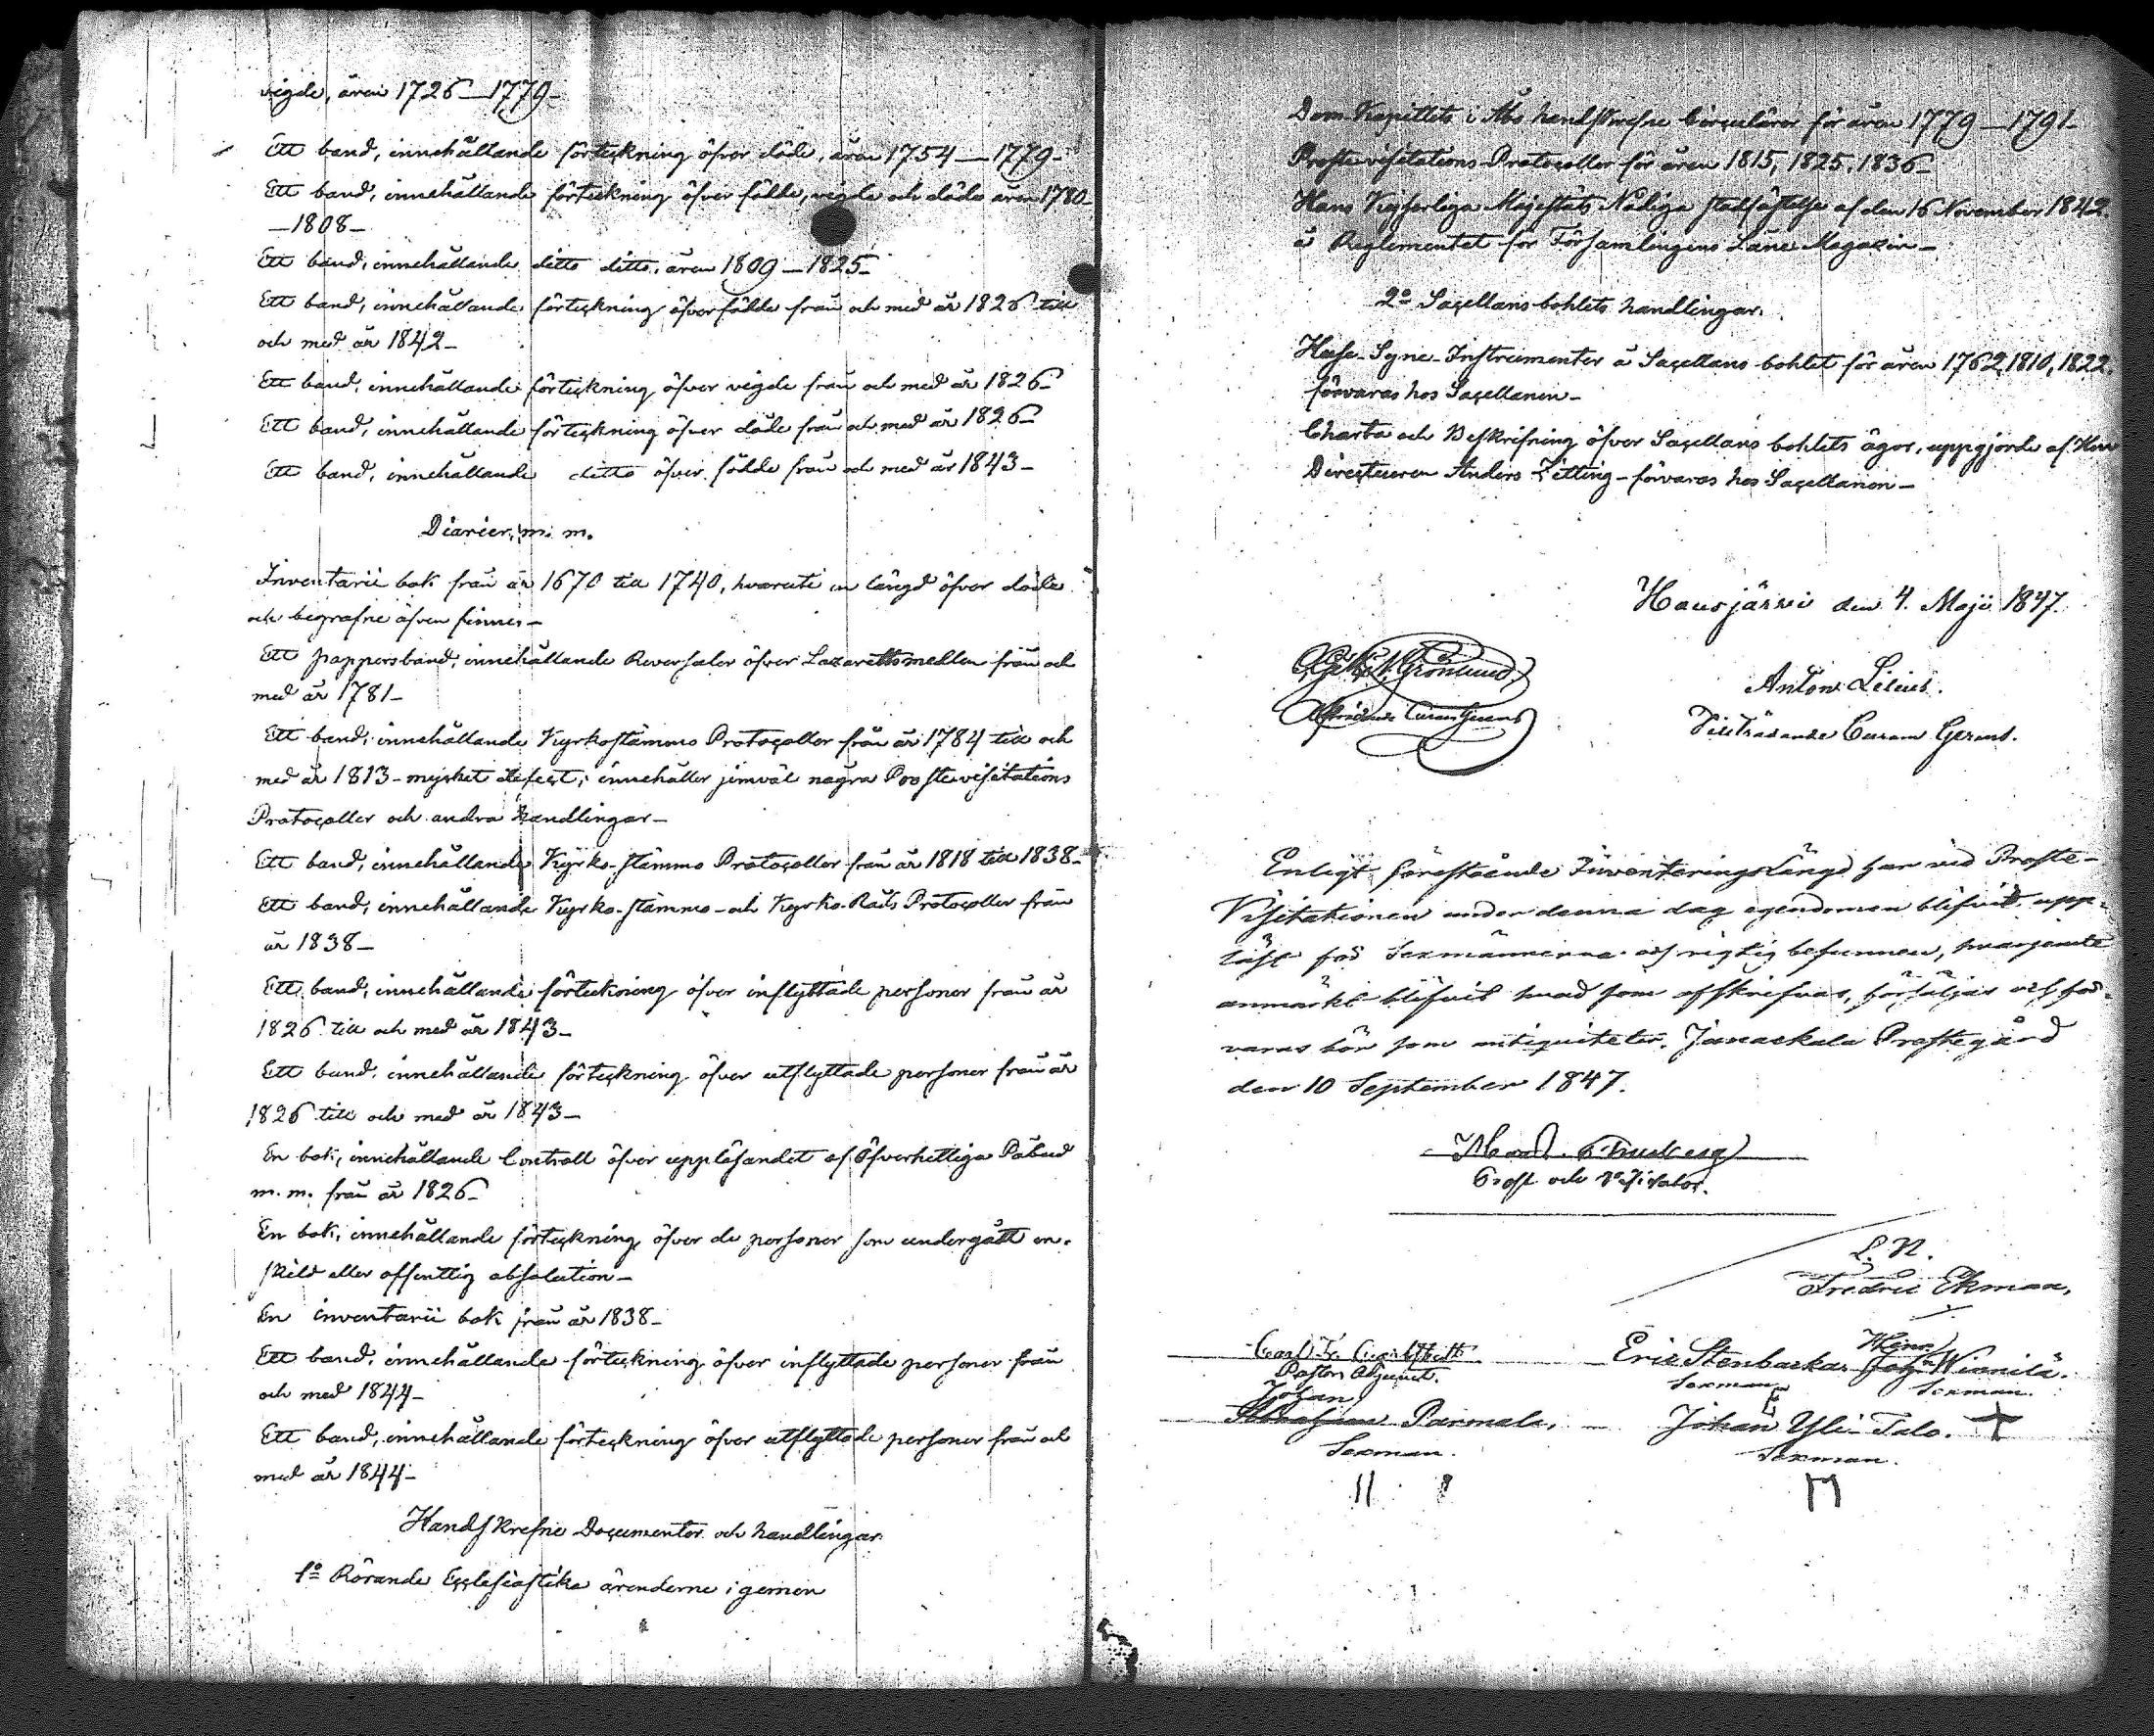 vigde, åren 1726 — 1779 —
Ett band, innehållande förteckning öfver döde, åren 1754 — 1779 —
Ett band, innehållande förteckning öfver födde, vigde och döda åren 1780 —
— 1808 —
Ett band, innehållande ditto ditto, åren 1809 — 1825 —
Ett band, innehållande förteckning öfver födde från och med år 1826 till
och med år 1842 —
Ett band, innehållande förteckning öfver vigde från och med år 1826 —
Ett band, innehållande förteckning öfver döde från och med år 1826 —
Ett band, innehållande ditto öfver födde från och med år 1843 —
Diarier, m. m.
Inventarii bok från år 1670 till 1740, hvaruti en längd öfver döde
och begrafne äfven finnes —
Ett pappersband, innehållande Reversaler öfver Lazarettsmedlen från och
med år 1781 —
Ett band, innehållande Kyrkostämmo Protocoller från år 1784 till och
med år 1813 — mycket defect; innehåller jemväl några Prostevisitations
Protocoller och andra handlingar —
Ett band, innehållande Kyrko-stämmo Protocoller från år 1818 till 1838 —
Ett band, innehållande Kyrko-stämmo- och Kyrko-Råds Protocoller från
år 1838 —
Ett band, innehållande förteckning öfver inflyttade personer från år
1826 till och med år 1843 —
Ett band, innehållande förteckning öfver utflyttade personer från år
1826 till och med år 1843 —
En bok, innehållande Controll öfver uppläsandet af Öfverhetliga Påbud
m. m. från år 1826 —
En bok, innehållande förteckning öfver de personer som undergått en-
skild eller offentlig absolution —
En inventarii bok från år 1838 —
Ett band, innehållande förteckning öfver inflyttade personer från
och med 1844 —
Ett band, innehållande förteckning öfver utflyttade personer från och
med år 1844 —
Handskrefne Documenter och handlingar.
1º Rörande Ecclesiastika ärenderne i gemen
Dom-Kapitlets i Åbo handskrefne Circulärer för åren 1779 — 1791 —
Prostevisitations-Protocoller för åren 1815, 1825, 1836 —
Hans Kejserliga Majestäts Nådiga stadfästelse af den 16 November 1842.
å Reglementet för Församlingens Låne-Magazin —
2º Sacellans-bohlets handlingar.
Huse-Syne-Instrumenter å Sacellans-bohlet för åren 1762, 1810, 1822,
förvaras hos Sacellanen —
Charta och Beskrifning öfver Sacellans bohlets ägor, uppgjorde af Herr
Directeuren Anders Zitting — förvaras hos Sacellanen —
Hausjärvi den 4. Maji 1847.
Grönlund
Afträdande Curam Gerens
Anton Lilius.
Tillträdande Curam Gerens.
Enligt förestående Inventeringslängd har vid Proste-
Visitationen under denna dag egendomen blifvit upp-
läst för Sexmännerna och rigtig befunnen, hvarjemte
anmärkt blifvit hvad som afskrifvas, försäljas och för-
varas bör som antiquiteter. Janackala Prostegård
den 10 September 1847.
Prost och Visitator.
L. N.
Fredric Ekman,
Pastors Adjunct.
Eric Stenbacka
Sexman
Henr.
Joh:n Winnilä.
Sexman.
Johan
Abraham Parmala,
Sexman.
Johan Yli-Talo.
Sexman.